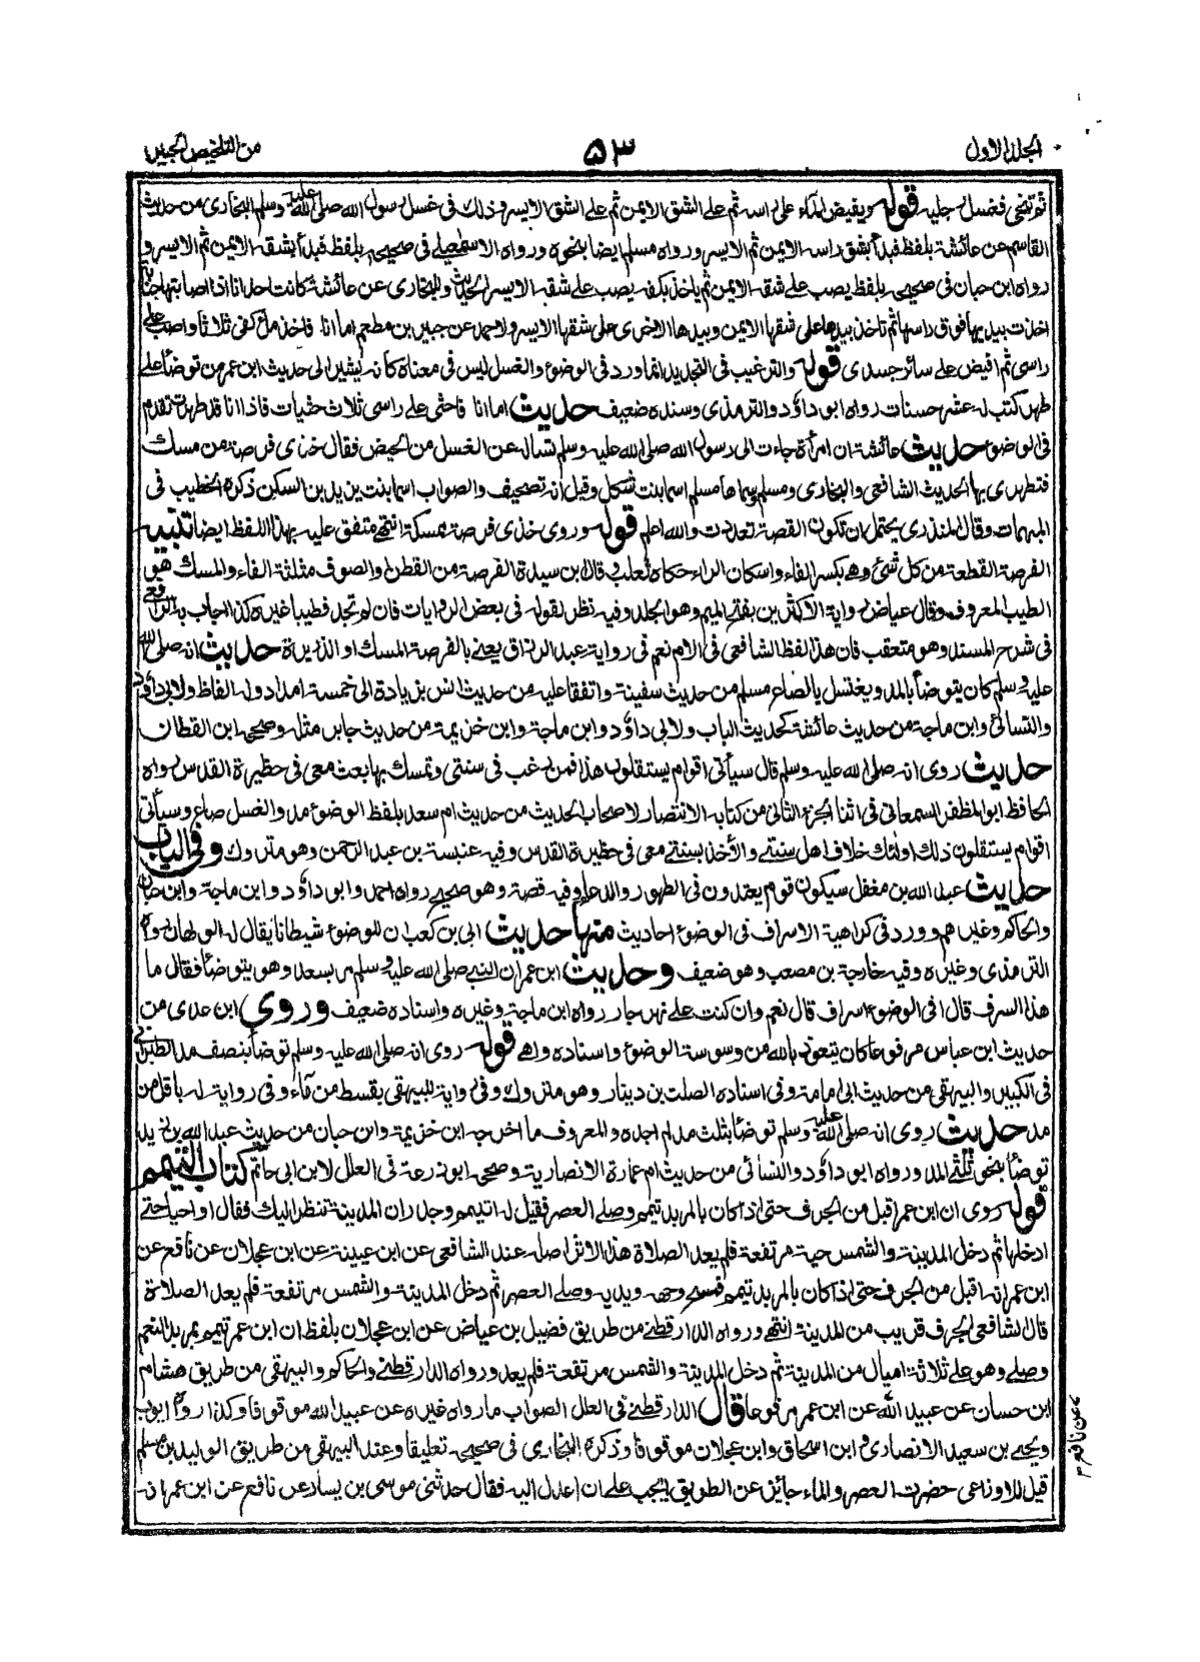 المجلد الاول
٥٣
من التلخيص الحبير
ثم تنحى فغسل رجليه قوله ويفيض الماء على راسه ثم على الشق الايمن ثم على الشق الايسر وذلك فى غسل رسول الله صلى الله عليه وسلم البخارى من حديث
القاسم عن عائشة بلفظ فبدأ بشق راسه الايمن ثم الايسر ورواه مسلم ايضا بنحوه ورواه الاسمعيلى فى صحيحه بلفظ فبدأ بشقه الايمن ثم الايسر و
رواه ابن حبان فى صحيحه بلفظ يصب على شقه الايمن ثم ياخذ بكفه يصب على شقه الايسر الحديث وللبخارى عن عائشة كانت احدانا اذا اصابتها جنابة
اخذت بيديها فوق راسها ثم تاخذ بيدها على شقها الايمن وبيدها الاخرى على شقها الايسر ولاحمد عن جبير بن مطعم اما انا فاخذ ملأ كفى ثلاثا واصب على
راسى ثم افيض على سائر جسدى قوله والترغيب فى التجديد انما ورد فى الوضوء والغسل ليس فى معناه كانه يشير الى حديث ابن عمر من توضأ على
طهر كتب له عشر حسنات رواه ابو داؤد والترمذى وسنده ضعيف حديث اما انا فاحثى على راسى ثلاث حثيات فاذا انا قد طهرت تقدم
فى الوضوء حديث عائشة ان امرأة جاءت الى رسول الله صلى الله عليه وسلم تسأله عن الغسل من الحيض فقال خذى فرصة من مسك
فتطهرى بها الحديث الشافعى والبخارى ومسلم وسماها مسلم اسما بنت شكل وقيل انه تصحيف والصواب اسما بنت يزيد بن السكن ذكره الخطيب فى
المبهمات وقال المنذرى يحتمل ان تكون القصة تعددت والله اعلم قوله وروى خذى فرصة ممسكة انتهى متفق عليه بهذا اللفظ ايضا تنبيه
الفرصة القطعة من كل شئ وهى بكسر الفاء واسكان الراء حكاه ثعلب وقال ابن سيدة الفرصة من القطن والصوف مثلثة الفاء والمسك هو
الطيب المعروف وقال عياض رواية الاكثرين بفتح الميم وهو الجلد وفيه نظر لقوله فى بعض الروايات فان لم تجد فطيبا غيره كذا اجاب به الرافعى
فى شرح المسند وهو متعقب فان هذا لفظ الشافعى فى الام نعم فى رواية عبد الرزاق يعنى بالفرصة المسك او الذريرة حديث انه صلى الله
عليه وسلم كان يتوضأ بالمد ويغتسل بالصاع مسلم من حديث سفينة واتفقا عليه من حديث انس بزيادة الى خمسة امداد وله الفاظ ولابى داؤد
والنسائى وابن ماجة من حديث عائشة كحديث الباب ولابى داؤد وابن ماجة وابن خزيمة من حديث جابر مثله وصححه ابن القطان
حديث روى انه صلى الله عليه وسلم قال سيأتى اقوام يستقلون هذا فمن رغب فى سنتى وتمسك بها بعث معى فى حظيرة القدس رواه
الحافظ ابو المظفر السمعانى فى اثنا الجزء الثانى من كتابه الانتصار لاصحاب الحديث من حديث ام سعد بلفظ الوضوء مد والغسل صاع وسيأتى
اقوام يستقلون ذلك اولئك خلاف اهل سنتى والآخذ بسنتى معى فى حظيرة القدس وفيه عنبسة بن عبد الرحمن وهو متروك وفى الباب
حديث عبد الله بن مغفل سيكون قوم يعتدون فى الطهور والدعاء وفيه قصة وهو صحيح رواه احمد وابو داؤد وابن ماجة وابن حبان
والحاكم وغيرهم وورد فى كراهية الاسراف فى الوضوء احاديث منها حديث ابى بن كعب ان للوضوء شيطانا يقال له الولهان رواه
الترمذى وغيره وفيه خارجة بن مصعب وهو ضعيف وحديث ابن عمر ان النبى صلى الله عليه وسلم مر بسعد وهو يتوضأ فقال ما
هذا السرف قال افى الوضوء اسراف قال نعم وان كنت على نهر جار رواه ابن ماجة وغيره واسناده ضعيف وروى ابن عدى من
حديث ابن عباس مرفوعا كان يتعوذ بالله من وسوسة الوضوء واسناده واهى قوله روى انه صلى الله عليه وسلم توضأ بنصف مد الطبرانى
فى الكبير والبيهقى من حديث ابى امامة وفى اسناده الصلت بن دينار وهو متروك وفى رواية للبيهقى بقسط من ماء وفى رواية له باقل من
مد حديث روى انه صلى الله عليه وسلم توضأ بثلث مد لم اجده والمعروف ما اخرجه ابن خزيمة وابن حبان من حديث عبد الله بن زيد
توضأ بنحو ثلثى المد ورواه ابو داؤد والنسائى من حديث ام عمارة الانصارية وصححه ابو زرعة فى العلل لابن ابى حاتم كتاب التيمم
قوله روى ان ابن عمر اقبل من الجرف حتى اذا كان بالمربد تيمم وصلى العصر فقيل له اتيمم وجدران المدينة تنظر اليك فقال او احيا حتى
ادخلها ثم دخل المدينة والشمس حية مرتفعة فلم يعد الصلاة هذا الاثر اصله عند الشافعى عن ابن عيينة عن ابن عجلان عن نافع عن
ابن عمر انه اقبل من الجرف حتى اذا كان بالمربد تيمم فمسح وجهه ويديه وصلى العصر ثم دخل المدينة والشمس مرتفعة فلم يعد الصلاة
قال الشافعى الجرف قريب من المدينة انتهى ورواه الدارقطنى من طريق فضيل بن عياض عن ابن عجلان بلفظ ان ابن عمر تيمم بمربد النعم
وصلى وهو على ثلاثة اميال من المدينة ثم دخل المدينة والشمس مرتفعة فلم يعد ورواه الدارقطنى والحاكم والبيهقى من طريق هشام
ابن حسان عن عبيد الله عن ابن عمر مرفوعا قال الدارقطنى فى العلل الصواب ما رواه غيره عن عبيد الله موقوفا وكذا رواه ايوب
ويحيى بن سعيد الانصارى وابن اسحاق وابن عجلان موقوفا وذكره البخارى فى صحيحه تعليقا وعند البيهقى من طريق الوليد بن مسلم
قيل للاوزاعى حضرت العصر والماء جائز عن الطريق ايجب على ان اعدل اليه فقال حدثنى موسى بن يسار عن نافع عن ابن عمر انه
عن نافع